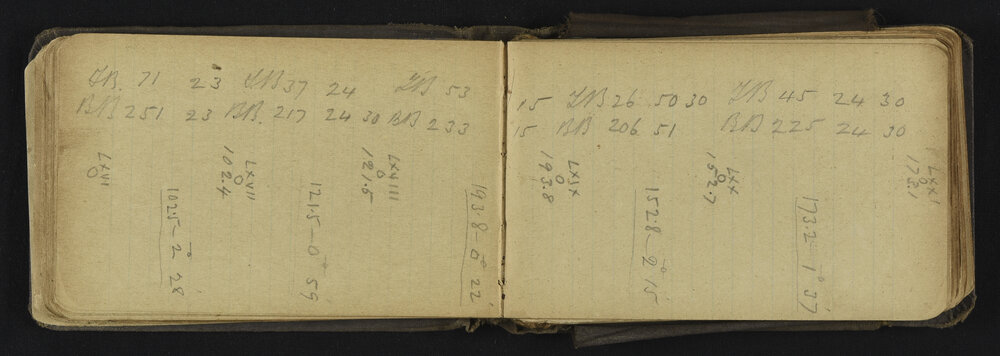 FB. 71 23 FB 37 24 FB 53
BB 251 23 BB. 217 24 30 BB 233
LXVI
0
LXVII
0
102.4
LXVIII
0
121.5
102.5 – 2° 28'
121.5 – 0° 59'
143.8 – 0° 22'
15 FB 26 50 30 FB 45 24 30
15 BB 206 51 BB 225 24 30
LXIX
0
193.8
LXX
0
152.7
LXXI
0
173.1
152.8 – 2° 15'
173.2 – 1° 37'